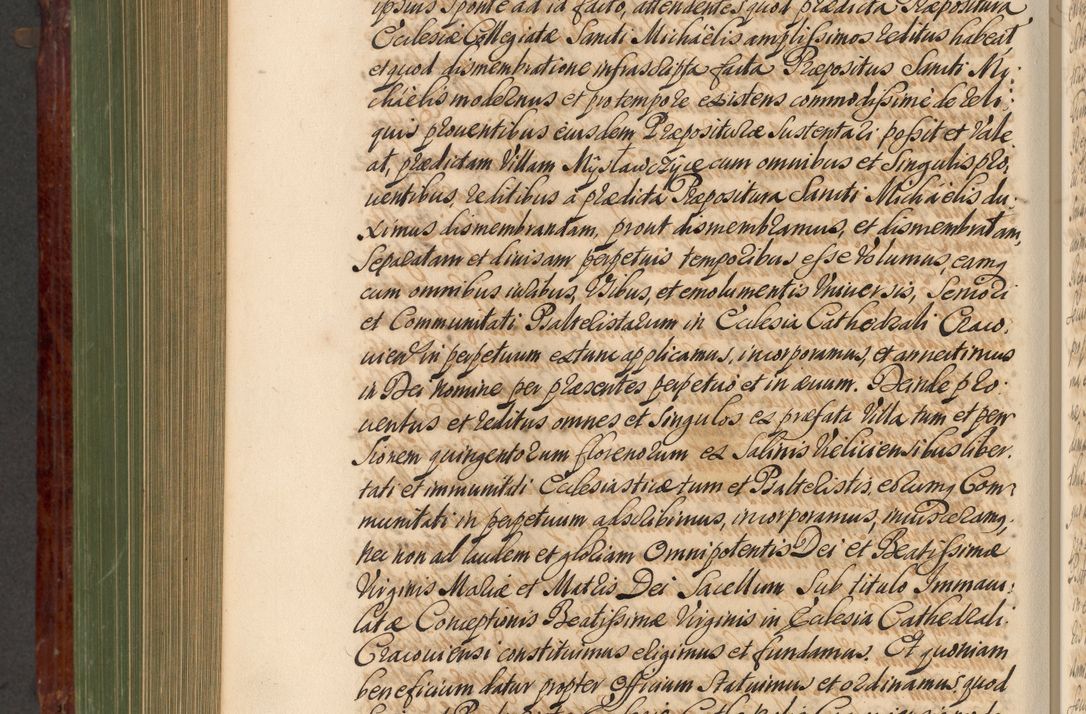 ipsius sponte ad id facto, attendentes quod prædicta Præpositura
Ecclesiæ Collegiatæ Sancti Michaëlis amplissimos reditus habeat,
et quod dismembratione infrascripta facta Præpositus Sancti Mi,
chaëlis modernus et pro tempore existens commodissimè de reli,
quis proventibus eiusdem Præposituræ sustentari possit et vale
at, prædictam Villam Mysławczyce cum omnibus et singulis pro,
uentibus, reditibus à prædicta Præpositura Sancti Michaëlis du,
ximus dismembrandam, prout dismembramus, et dismembratam,
separatam et diuisam perpetuis temporibus esse volumus, eamq
cum omnibus iuribus, Vsibus, et emolumentis Vniuersis, Seniori
et Communitati Psalteristarum in Ecclesia Cathedrali Craco,
uien in perpetuum extunc applicamus, incorporamus, et annectimus
in Dei nomine per præsentes perpetuò et in æuum. Deinde pro,
uentus et reditus omnes et singulos ex præfata Villa tum et pen
sionem quingentorum florenorum ex Salinis Veliciensibus liber,
tati et immunitati Ecclesiasticæ tum et Psalteristis, eorumq Com
munitati in perpetuum adscribimus, incorporamus, inuisceramq,
nec non ad laudem et gloriam Omnipotentis Dei et Beatissimæ
Virginis Mariæ et Matris Dei Sacellum sub titulo Immacu,
latæ Conceptionis Beatissimæ Virginis in Ecclesia Cathedrali
Cracouiensi constituimus erigimus et fundamus. Et quoniam
beneficium datur propter Officium statuimus et ordinamus, quod